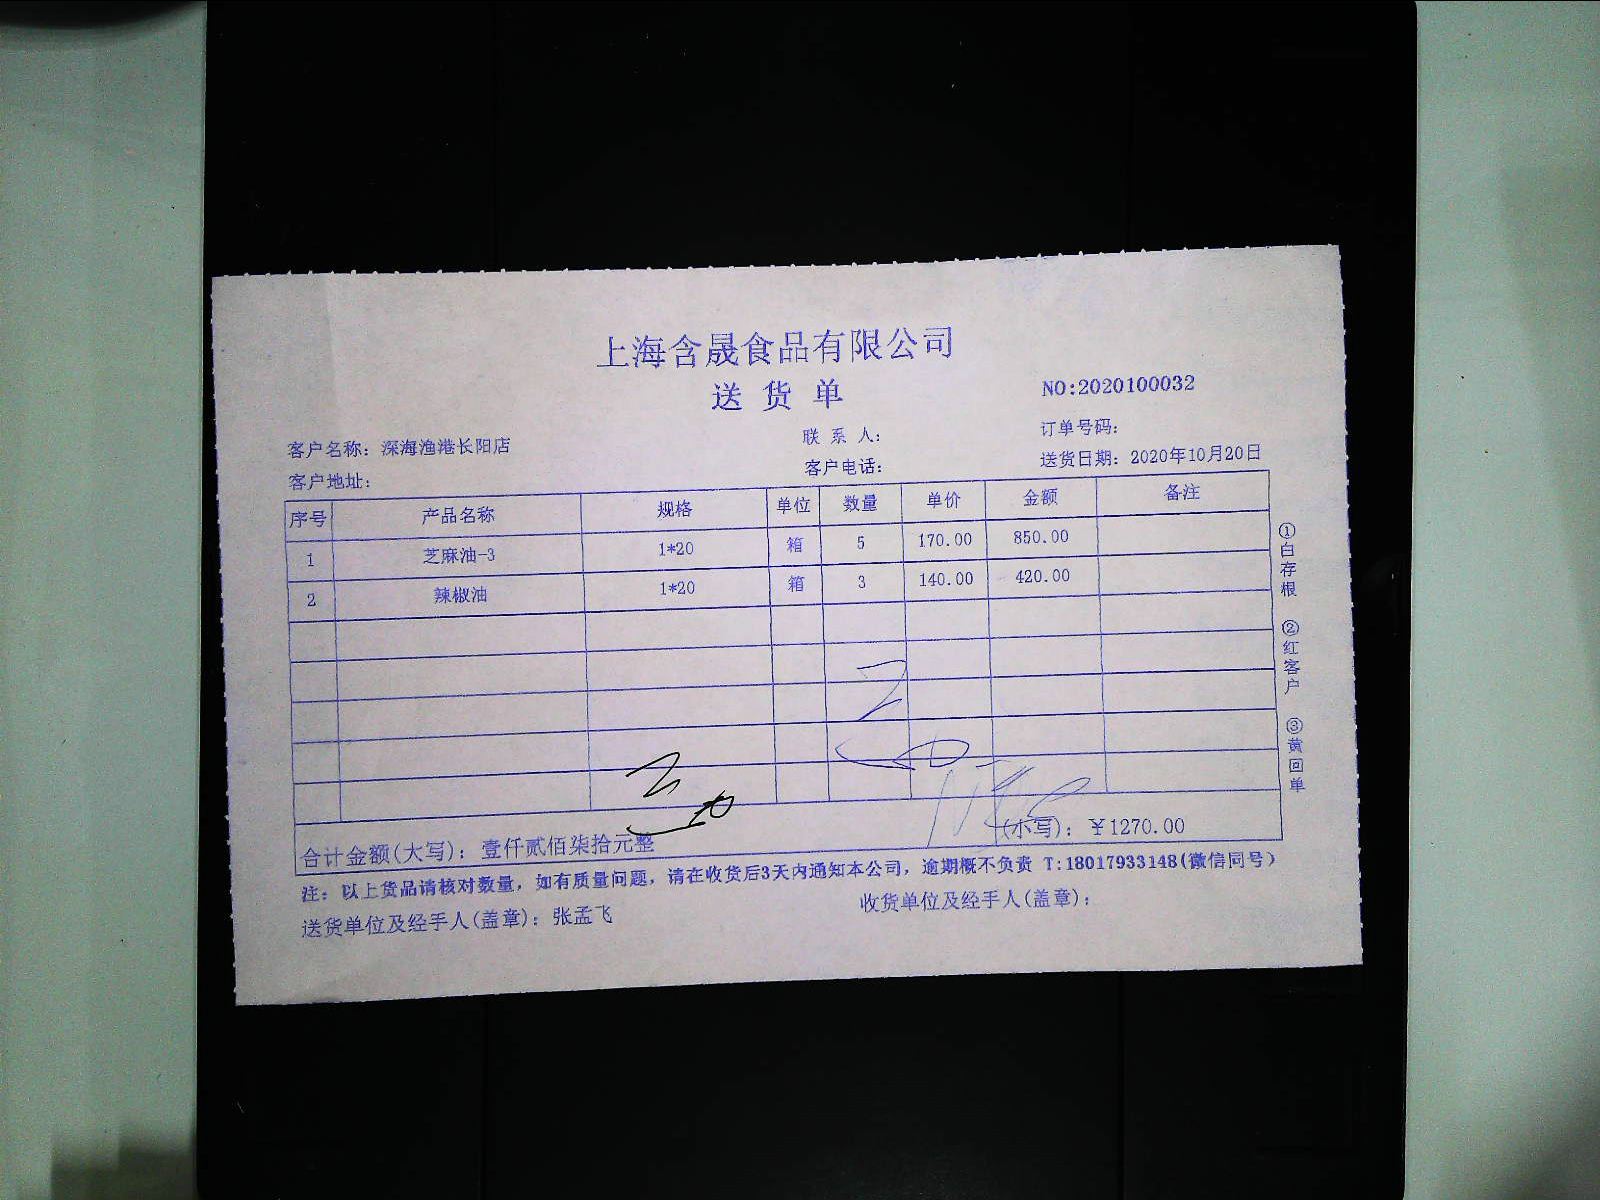 上海含晟食品有限公司
送 货 单
NO:2020100032
客户名称: 深海渔港长阳店
联 系 人:
订单号码:
客户地址:
客户电话:
送货日期: 2020年10月20日
序号 产品名称 规格 单位 数量 单价 金额 备注
1 芝麻油-3 1*20 箱 5 170.00 850.00
2 辣椒油 1*20 箱 3 140.00 420.00
合计金额(大写): 壹仟贰佰柒拾元整 (小写): ¥1270.00
注: 以上货品请核对数量, 如有质量问题, 请在收货后3天内通知本公司, 逾期概不负责 T:18017933148(微信同号)
送货单位及经手人(盖章): 张孟飞
收货单位及经手人(盖章):
①白存根 ②红客户 ③黄回单